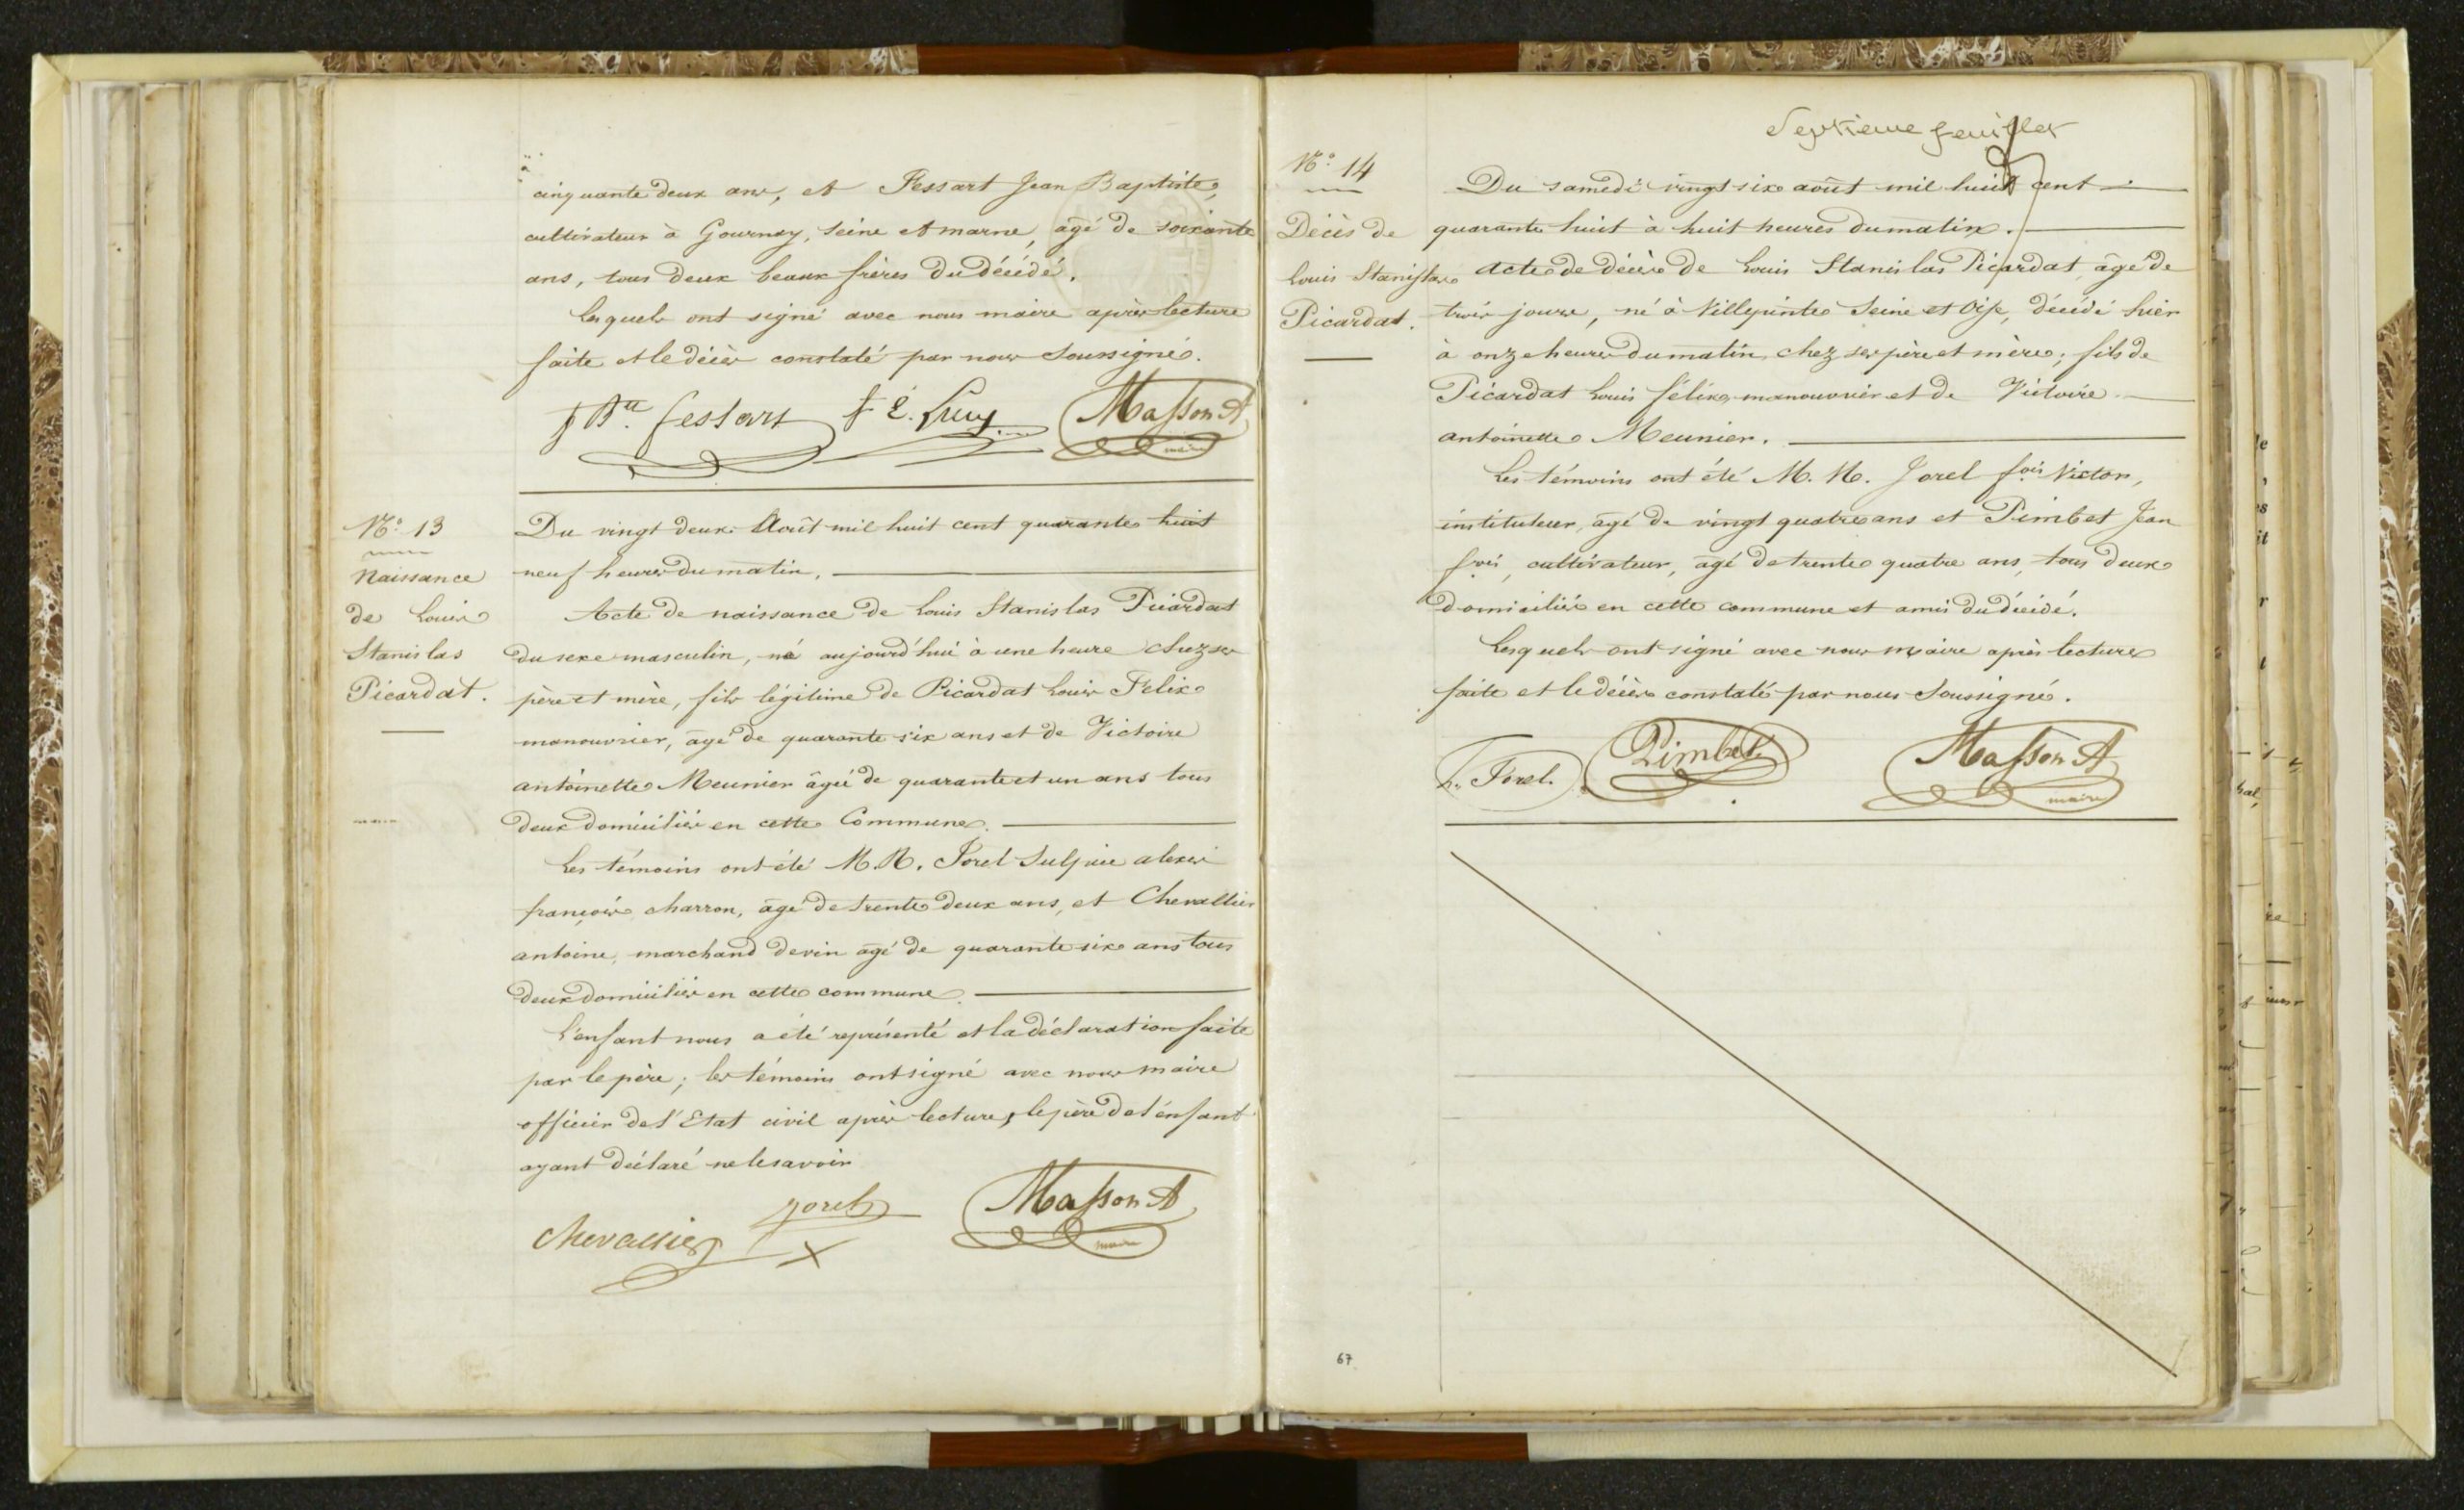 cinquante deux ans, et Fessart Jean Baptiste,
cultivateur à Gournay, Seine et marne, âgé de soixante
ans, tous deux beaux frères du décédé.
Lesquels ont signé avec nous maire après lecture
faite et le décès constaté par nous Soussigné.
J Bte fessart f É. Masson A
maire
No. 13
Naissance
de Louis
Stanislas
Picardat.
Du vingt deux Août mil huit cent quarante huit
neuf heures du matin.
Acte de naissance de Louis Stanislas Picardat
du sexe masculin, né aujourd'hui à une heure chez ses
père et mère, fils légitime de Picardat Louis Felix
manouvrier, âgé de quarante six ans et de Victoire
antoinette Meunier âgée de quarante et un ans tous
deux domiciliés en cette Commune.
Les témoins ont été M.M. Jorel Sulpice alexis
françois charron, âgé de trente deux ans, et Chevallier
antoine, marchand de vin âgé de quarante six ans tous
deux domiciliés en cette commune.
L'enfant nous a été représenté et la déclaration faite
par le père; les témoins ont signé avec nous maire
officier de l'Etat civil après lecture, le père de l'enfant
ayant déclaré ne le savoir
Chevallier Jorel Masson A
maire
Septième feuillet
No. 14
Décès de
Louis Stanislas
Picardat.
Du samedi vingt six août mil huit cent
quarante huit à huit heures du matin.
Acte de décès de Louis Stanislas Picardat, âgé de
trois jours, né à Villepinte Seine et Oise, décédé hier
à onze heures du matin, chez ses père et mère; fils de
Picardat Louis félix, manouvrier et de Victoire
antoinette Meunier.
Les témoins ont été M.M. Jorel fois Victor,
instituteur, âgé de vingt quatre ans et Pimbet Jean
fois, cultivateur, âgé de trente quatre ans, tous deux
domiciliés en cette commune et amis du décédé.
Lesquels ont signé avec nous maire après lecture
faite et le décès constaté par nous Soussigné.
Jorel. Pimbet Masson A
maire
67